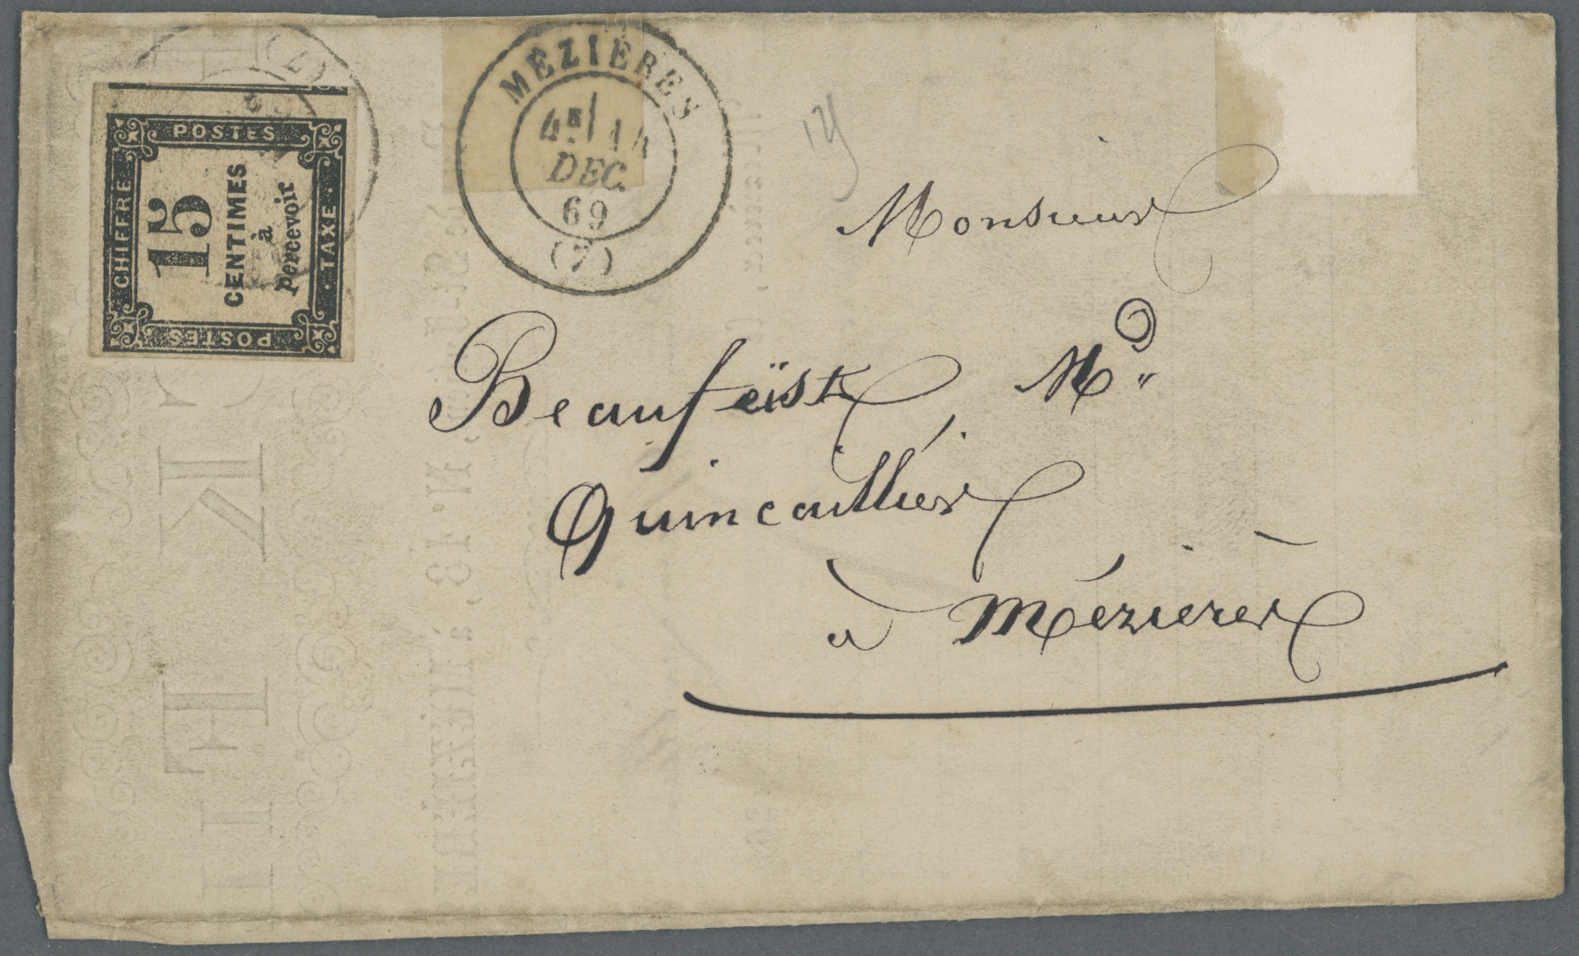 POSTES
CHIFFRE
15
CENTIMES
à
percevoir
TAXE
POSTES
MÉZIÈRES
4E 14
DEC.
69
(7)
Monsieur
Beaufeïst Md
Quincaillier
à Mézières